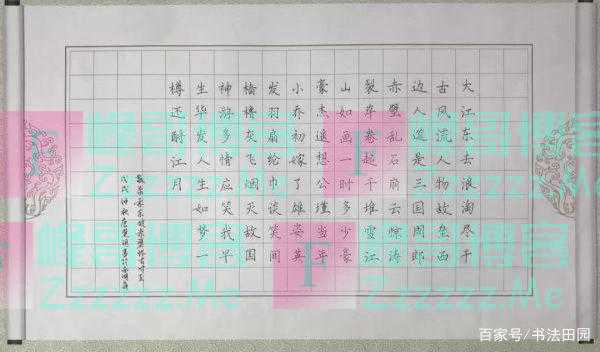 大江东去浪淘尽千
古风流人物故垒西
边人道是三国周郎
赤壁乱石崩云惊涛
裂岸卷起千堆雪江
山如画一时多少豪
豪杰遥想公瑾当年
小乔初嫁了雄姿英
发羽扇纶巾谈笑间
樯橹灰飞烟灭故国
神游多情应笑我早
生华发人生如梦一
樽还酹江月
敬录苏东坡赤壁怀古
戊戌仲秋
峰哥博客
Zzzzzz.Me
峰哥博客
Zzzzzz.Me
峰哥博客
Zzzzzz.Me
峰哥博客
Zzzzzz.Me
百家号/书法田园